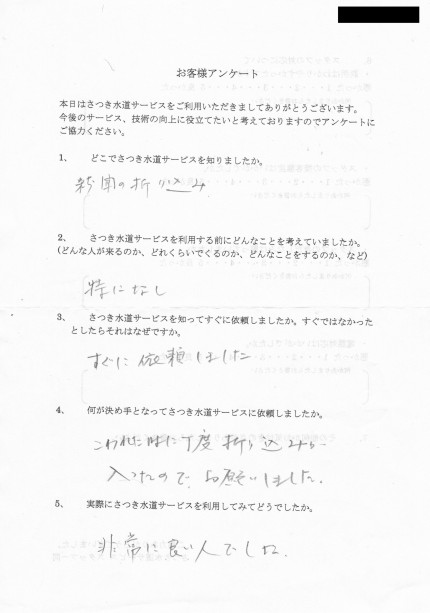 お客様アンケート
本日はさつき水道サービスをご利用いただきましてありがとうございます。
今後のサービス、技術の向上に役立てたいと考えておりますのでアンケートに
ご協力ください。
1、 どこでさつき水道サービスを知りましたか。
新聞の折り込み
2、 さつき水道サービスを利用する前にどんなことを考えていましたか。
(どんな人が来るのか、どれくらいでくるのか、どんなことをするのか、など)
特になし
3、 さつき水道サービスを知ってすぐに依頼しましたか。すぐではなかった
としたらそれはなぜですか。
すぐに依頼しました
4、 何が決め手となってさつき水道サービスに依頼しましたか。
こわれた時に丁度折り込みが
入ったので、お願いしました.
5、 実際にさつき水道サービスを利用してみてどうでしたか。
非常に良い人でした.